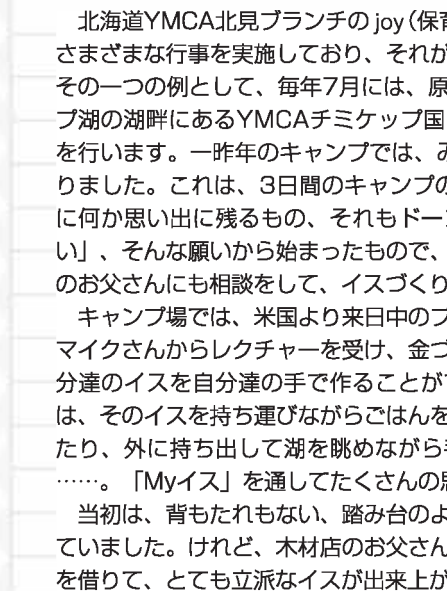 北海道YMCA北見ブランチのjoy（保育
さまざまな行事を実施しており、それが
その一つの例として、毎年7月には、原
プ湖の湖畔にあるYMCAチミケップ国
を行います。一昨年のキャンプでは、み
りました。これは、3日間のキャンプの
に何か思い出に残るもの、それもドー
い」、そんな願いから始まったもので、
のお父さんにも相談をして、イスづくり
キャンプ場では、米国より来日中のフ
マイクさんからレクチャーを受け、金づ
分達のイスを自分達の手で作ることが
は、そのイスを持ち運びながらごはんを
たり、外に持ち出して湖を眺めながら
……。「Myイス」を通してたくさんの思
当初は、背もたれもない、踏み台のよ
ていました。けれど、木材店のお父さん
を借りて、とても立派なイスが出来上が